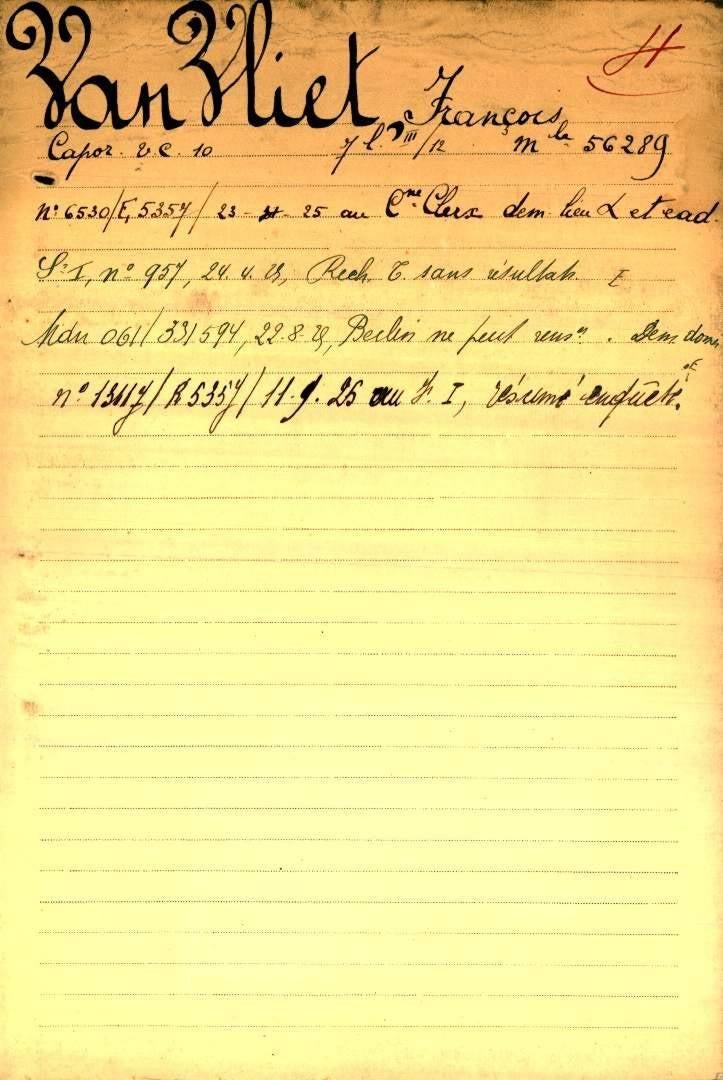 H
Van Vliet François
Capor. v c. 10 7 l. III/12 Mle 56289
n° 6530/E, 5357/ 23 - 4 - 25 au Cne Clerx dem. lieu et cad.
Sr I, n° 957, 24. 4. 25, Rech. T. sans résultat. I
Mdn 061/331594, 22-8-25, Berlin ne peut rensn. Dem.
n° 13117/R 5357/ 11. 9. 25 au F. I, résumé enquête.